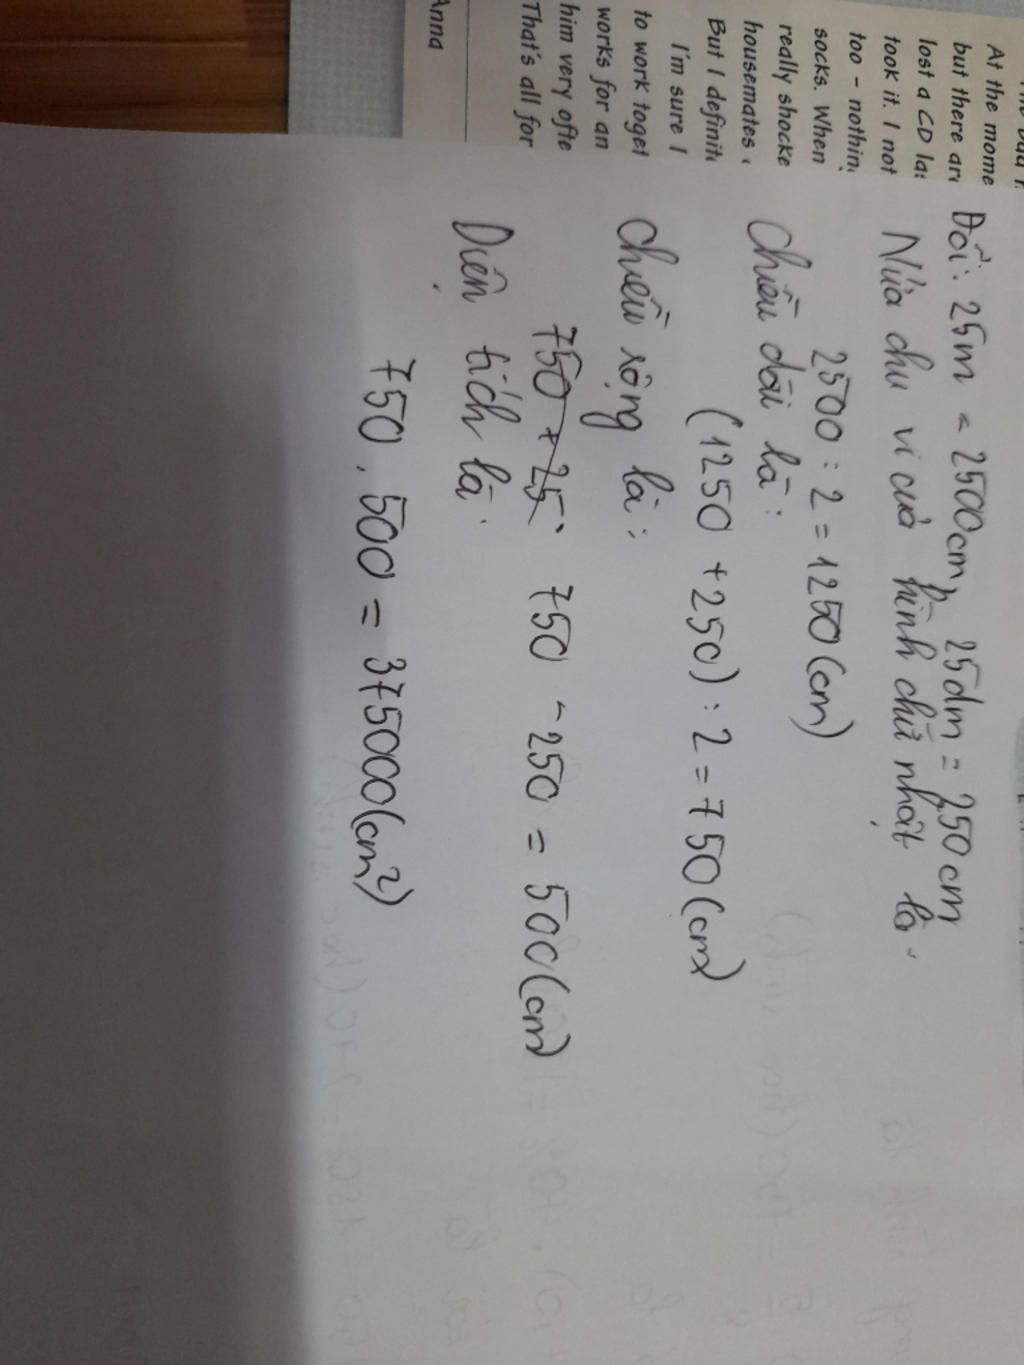 At the mome
but there are
lost a CD las
took it. I not
too - nothin
socks. When
really shocke
housemates
But I definit
I'm sure I
to work toget
works for an
him very ofte
That's all for
Anna
Đổi: 25m = 2500cm, 25dm = 250cm
Nửa chu vi của hình chữ nhật là:
2500 : 2 = 1250 (cm)
Chiều dài là:
(1250 + 250) : 2 = 750 (cm)
Chiều rộng là:
750 + 25 750 - 250 = 500 (cm)
Diện tích là:
750 . 500 = 375000 (cm²)